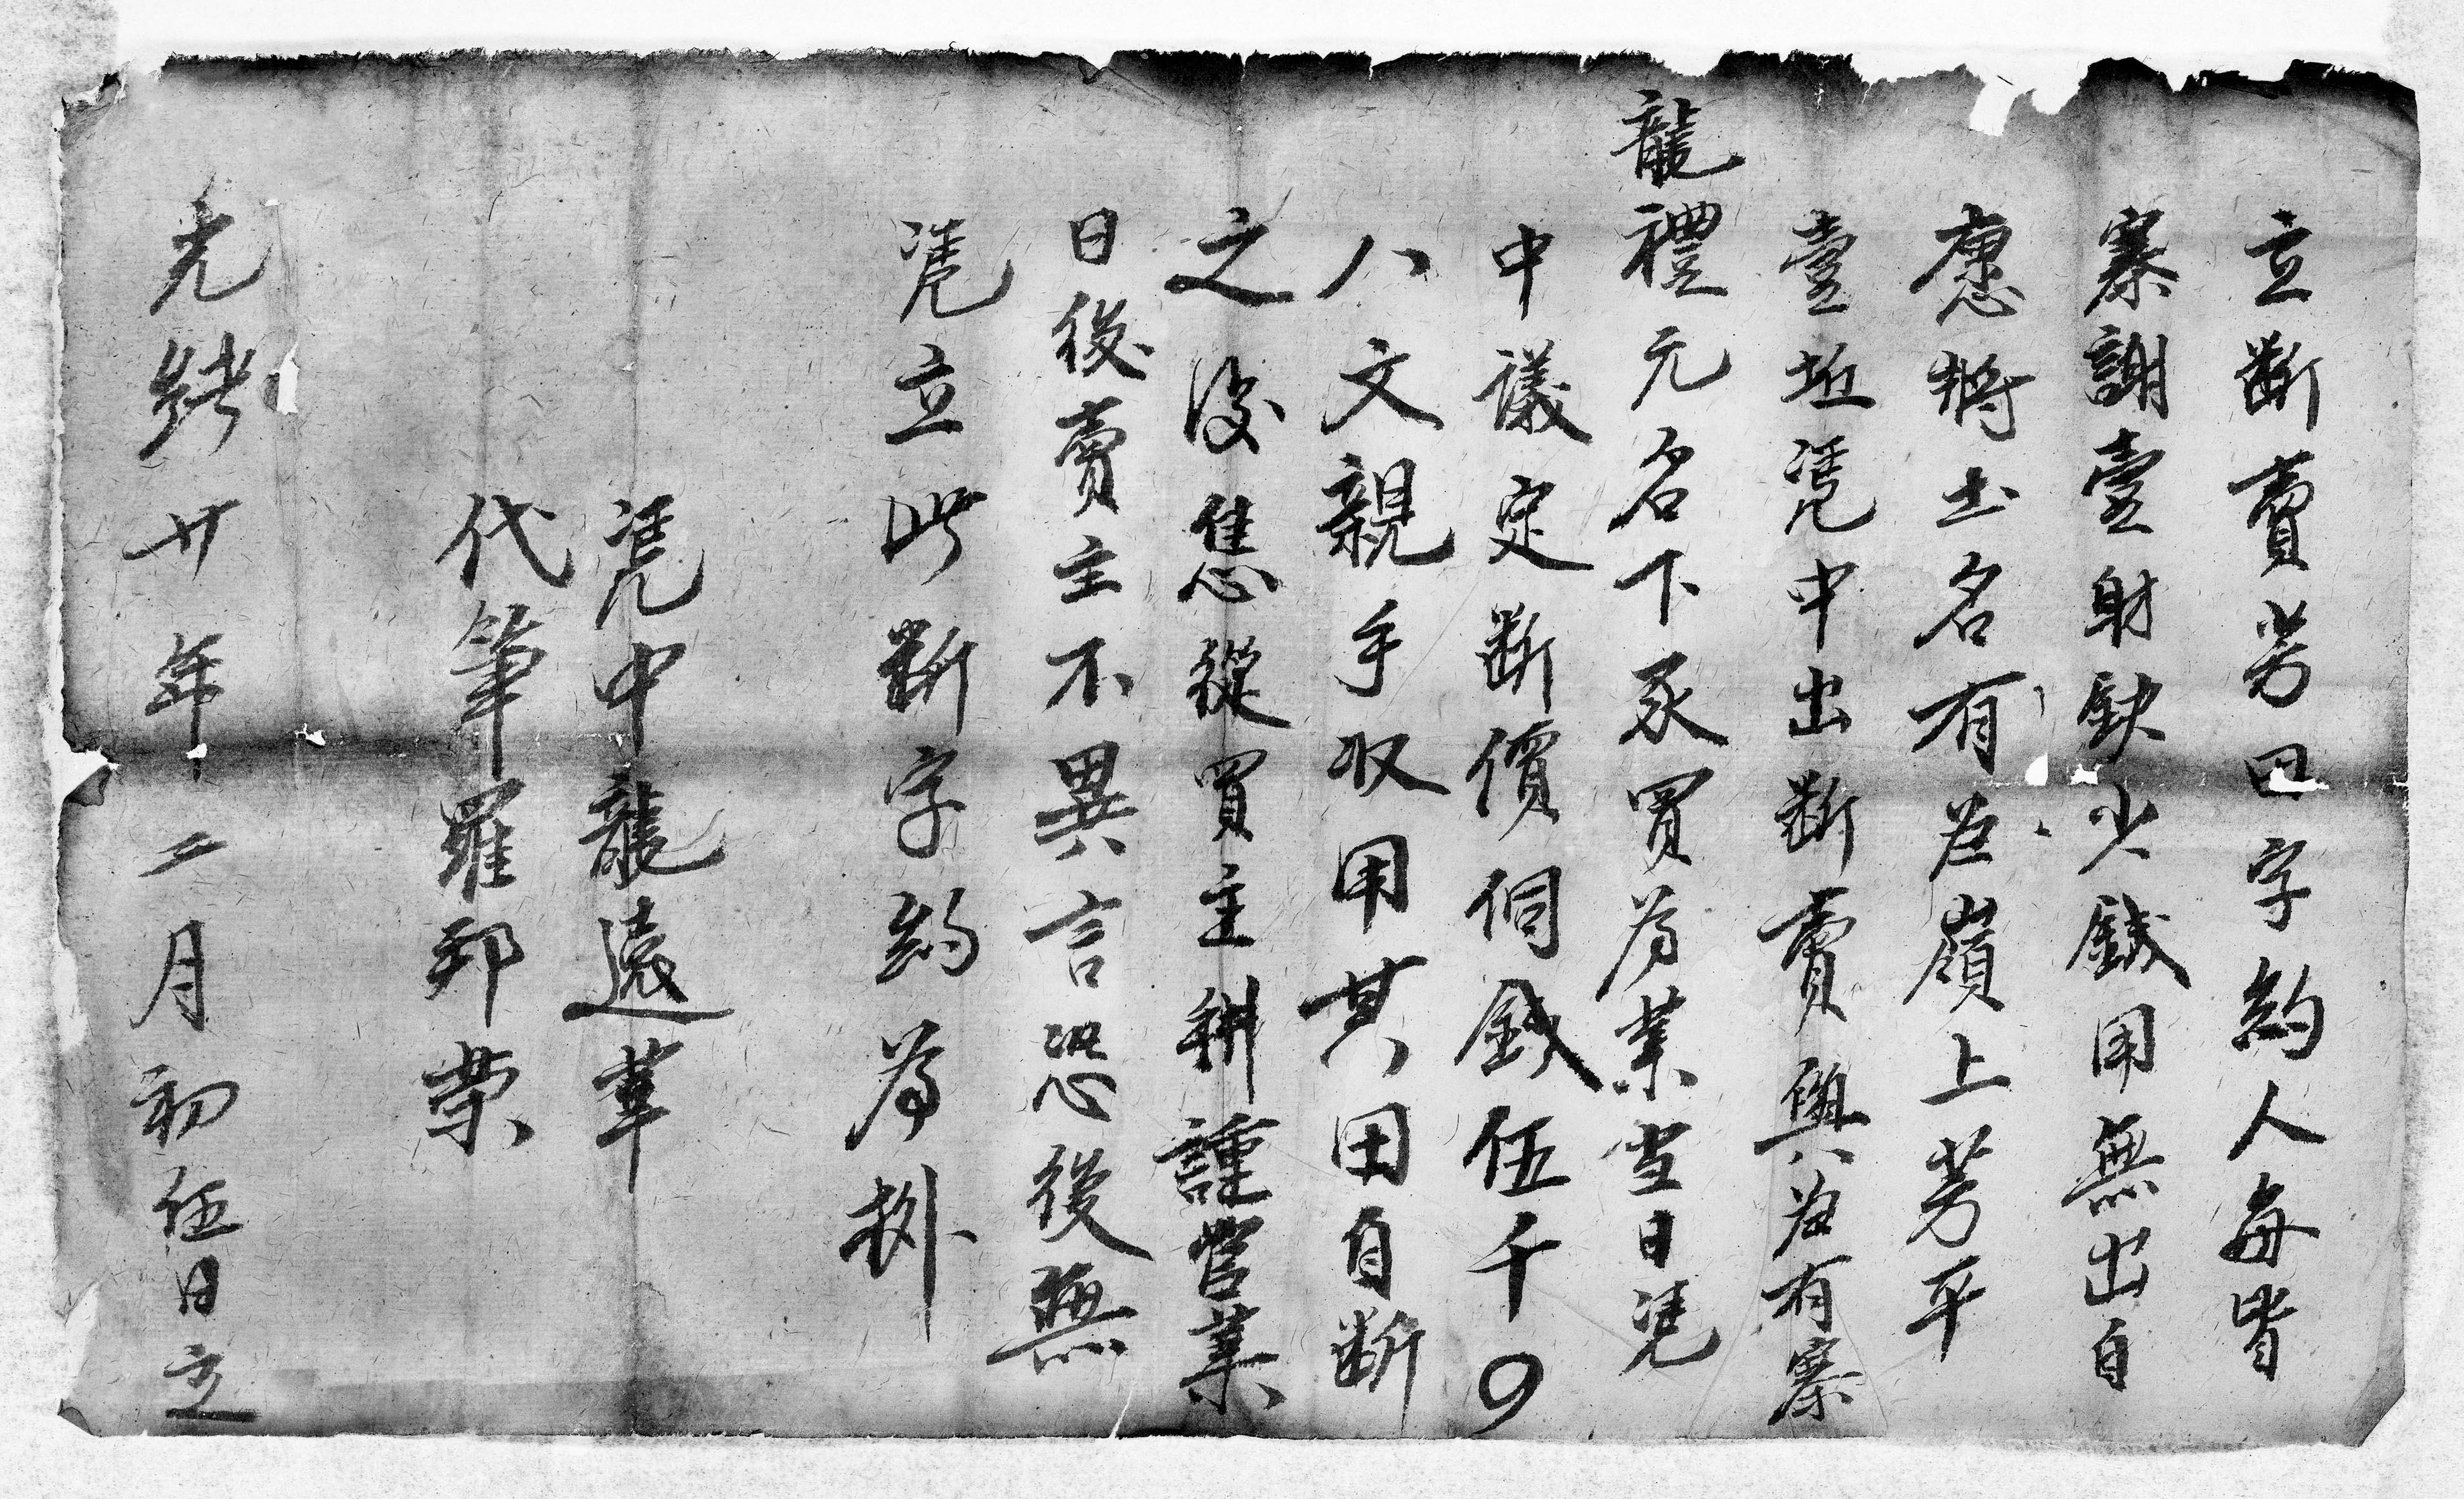 立斷賣芳田字約人每皆
寨謝壹財缺少錢用無出自
愿將土名有為嶺上芳平
壹坵凴中出斷賣與為有寨
龍禮元名下承買為業當日凴
中議定斷價侗錢伍千〇
八文親手収用其田自斷
之後恁從買主耕謹營業
日後賣主不異言恐後無
凴立此斷字約為拠
凴中龍遠華
代筆羅邦榮
光緒廿年二月初伍日立